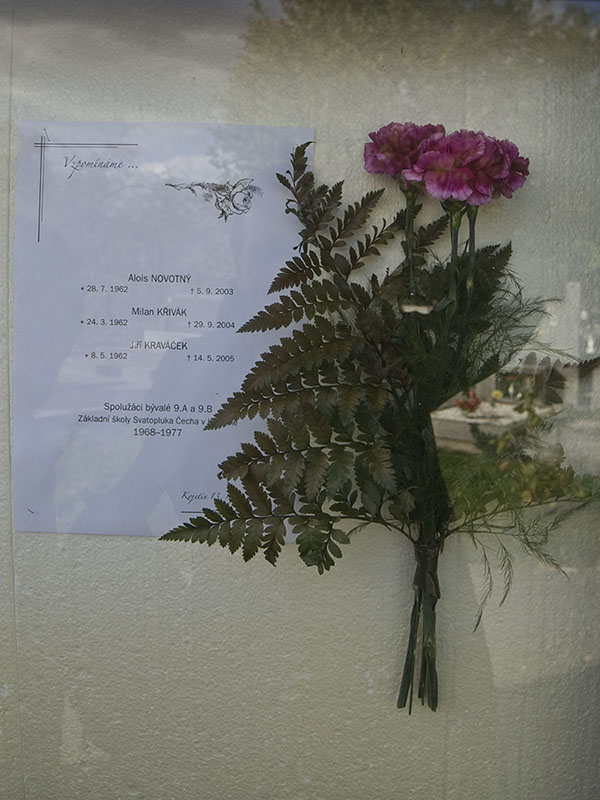 Vzpomínáme ...
Alois NOVOTNÝ
* 28. 7. 1962 † 5. 9. 2003
Milan KŘIVÁK
* 24. 3. 1962 † 29. 9. 2004
Jiří KRAVÁČEK
* 8. 5. 1962 † 14. 5. 2005
Spolužáci bývalé 9.A a 9.B
Základní školy Svatopluka Čecha v
1968–1977
Kojetín 13